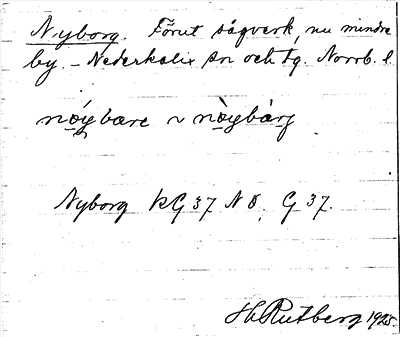 Nyborg. Förut sågverk, nu mindre
by. - Nederkalix sn och tg. Norrb. l.
Nyborg KG 37 NÖ, G 37.
H. Rutberg 1925.